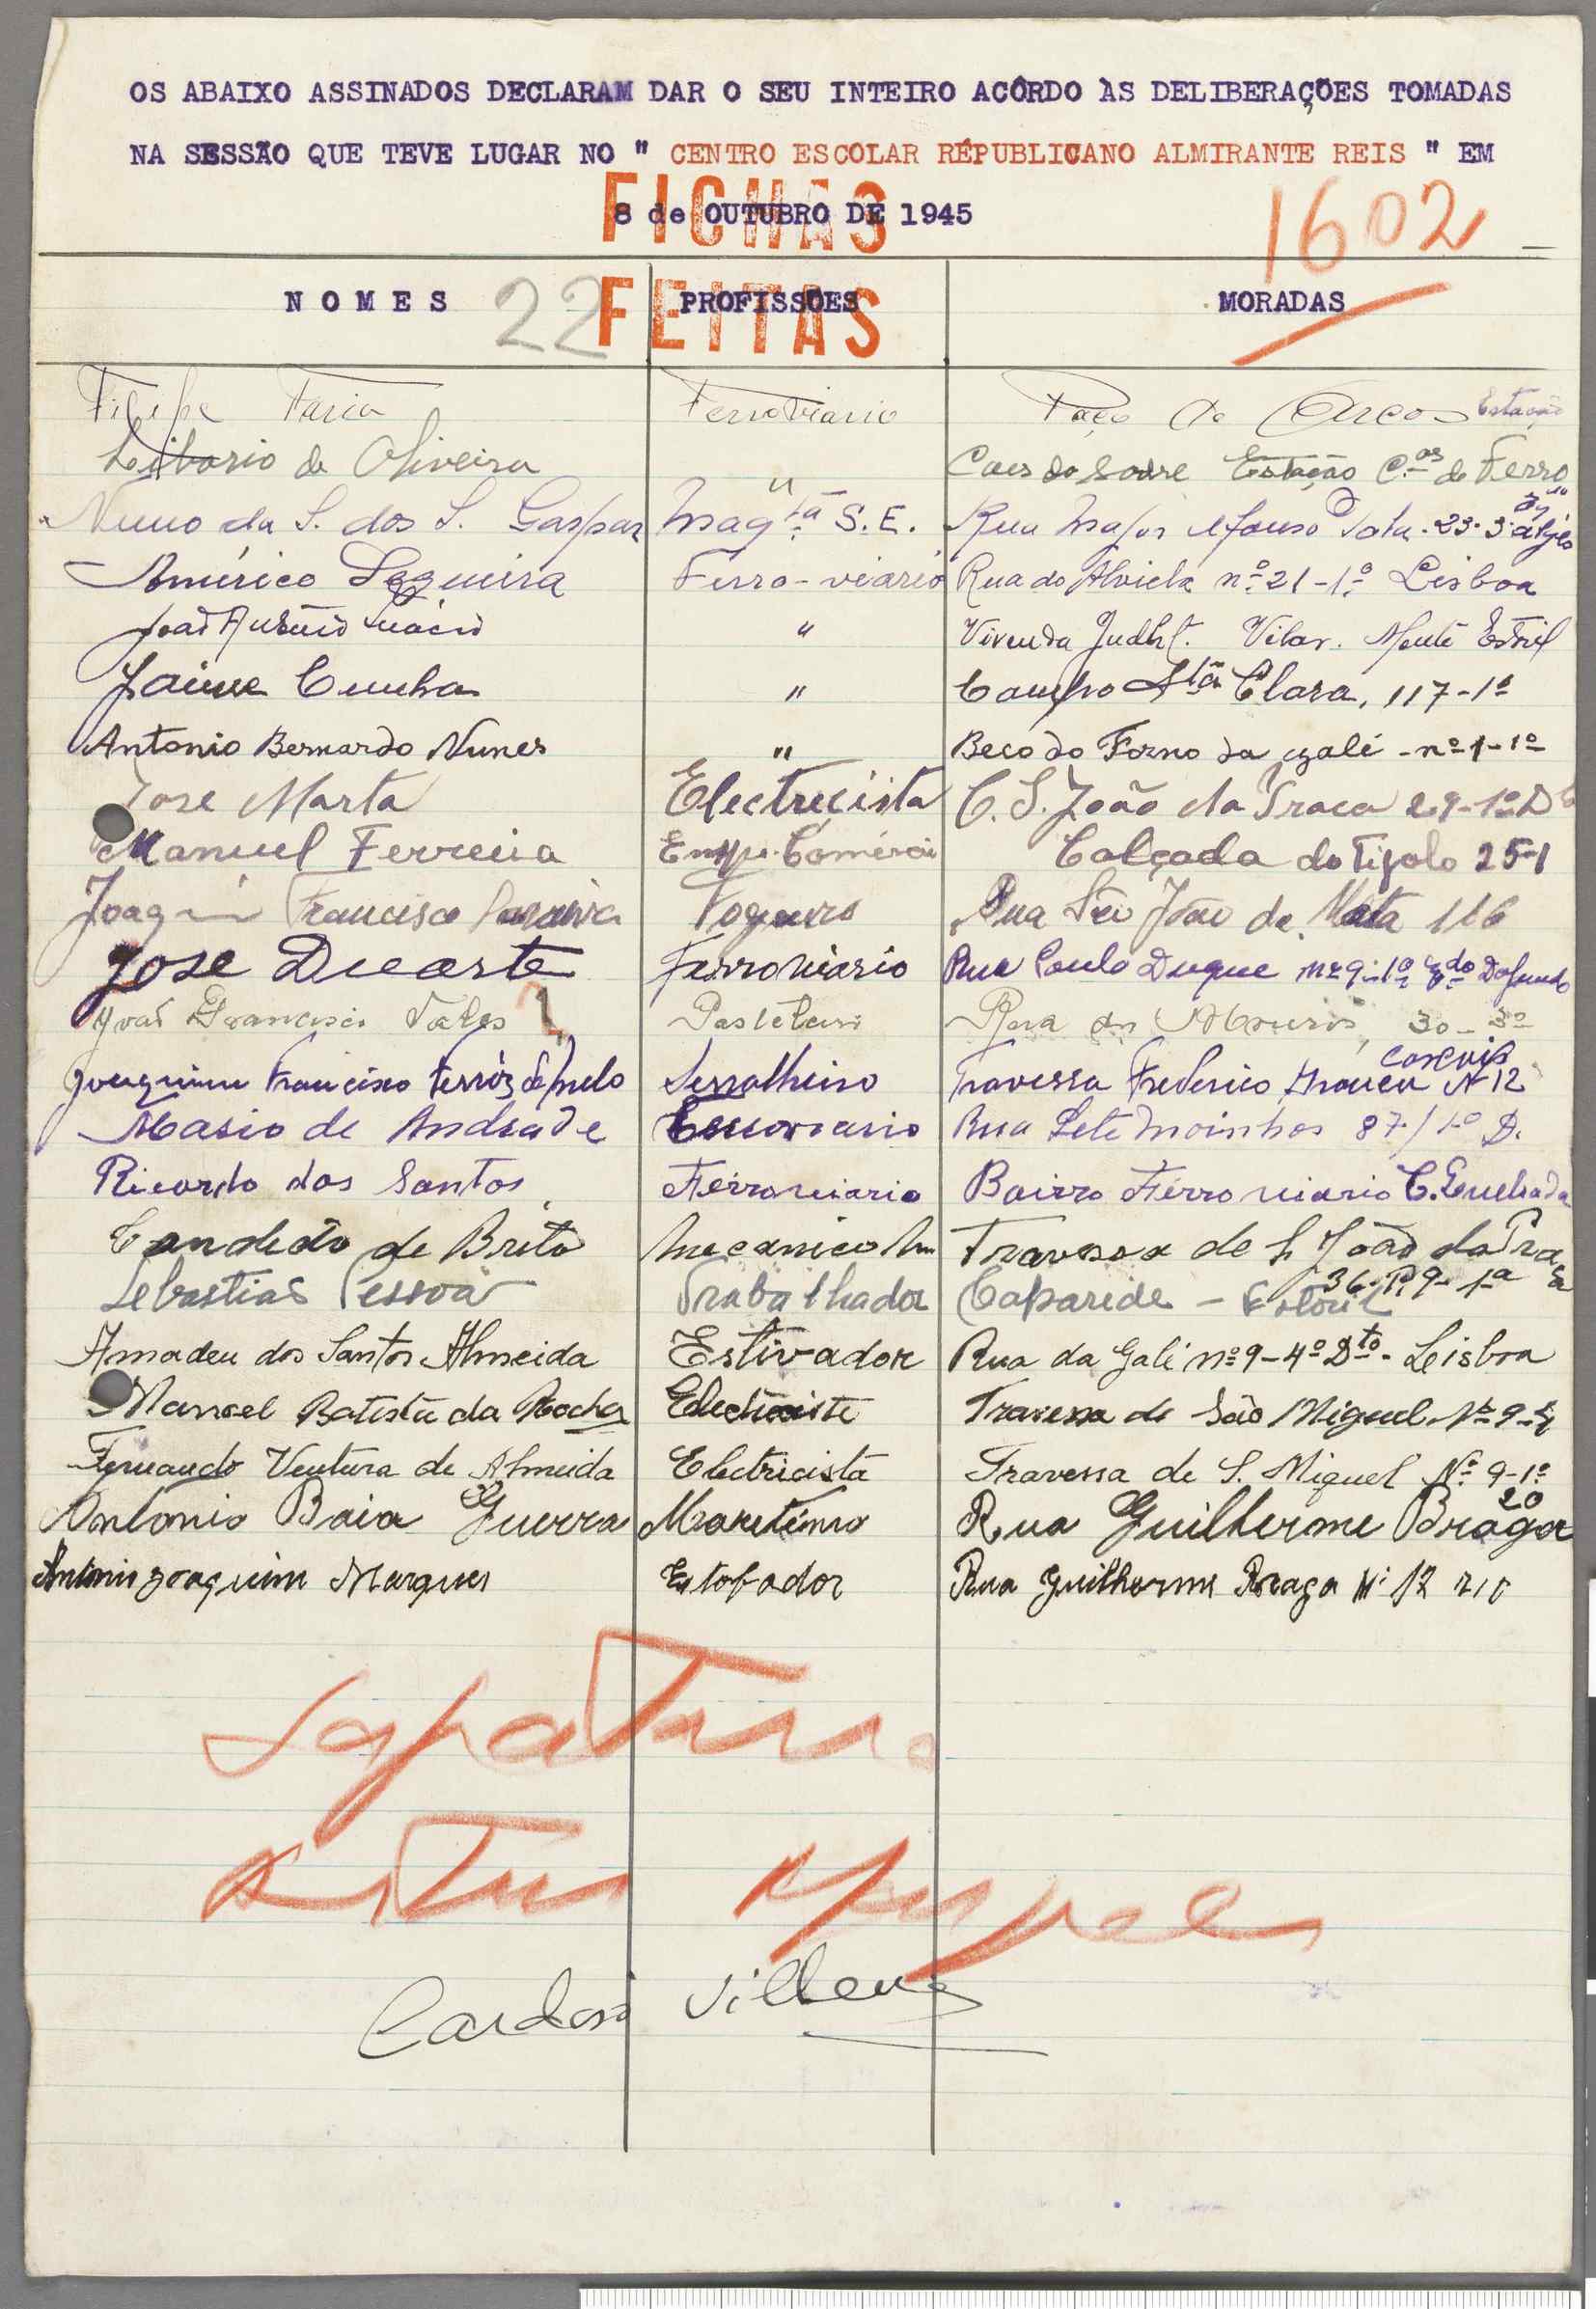 OS ABAIXO ASSINADOS DECLARAM DAR O SEU INTEIRO ACÔRDO ÀS DELIBERAÇÕES TOMADAS
NA SESSÃO QUE TEVE LUGAR NO " CENTRO ESCOLAR RÉPUBLICANO ALMIRANTE REIS " EM
8 de OUTUBRO DE 1945
FICHAS
FEITAS
1602
22
NOMES PROFISSÕES MORADAS
Filipe Faria Ferroviario Paço de Arcos Estação
Liborio de Oliveira " Caes do Sodre Estação C.as de Ferro
Nuno da S. dos S. Gaspar Mag.ta S.E. Rua Major Afonso 23-3º
Américo Sequeira Ferro-viário Rua do Alviela nº 21-1º Lisboa
João " Vivenda Vilar. Monte Estril
Jaime Cunha " Campo Stª Clara, 117-1º
Antonio Bernardo Nunes " Beco do Forno da galé - nº 1-1º
Jose Marta Electrecista C. S. João da Praca 29-1º D
Manuel Ferreira Emp. Comércio Calçada do Tijolo 25-1
Joaquin Francisco Fogueiro Rua São João da Mata 116
Jose Duarte Ferroviario Rua Paulo Duque nº 9-1º Dafundo
João Francisco Pasteleiro Rua 30-3º
Joaquim Francisco de Melo Serralheiro Travessa Frederico Nº 12 Cascais
Masio de Andrade Rua Sete Moinhos 87/1º D.
Ricardo dos Santos Ferroviario Bairro Ferroviario
Candido de Brito Mecanico Travessa de S João da Praça
36-P. 9-1º
Sebastião Pessoa Trabalhador Caparide - Estoril
Amadeu dos Santos Almeida Estivador Rua da Galé nº 9-4º Dto - Lisboa
Manoel Batista da Rocha Electricista Travessa de São Miguel Nº 9
Fernando Ventura de Almeida Electricista Travessa de S. Miguel Nº 9-1º
Antonio Baia Guerra Maretimo Rua Guilherme Braga 20
Antonio Joaquim Marques Estofador Rua Guilherme Braga Nº 12
Sapateiro
Cardoso Villena